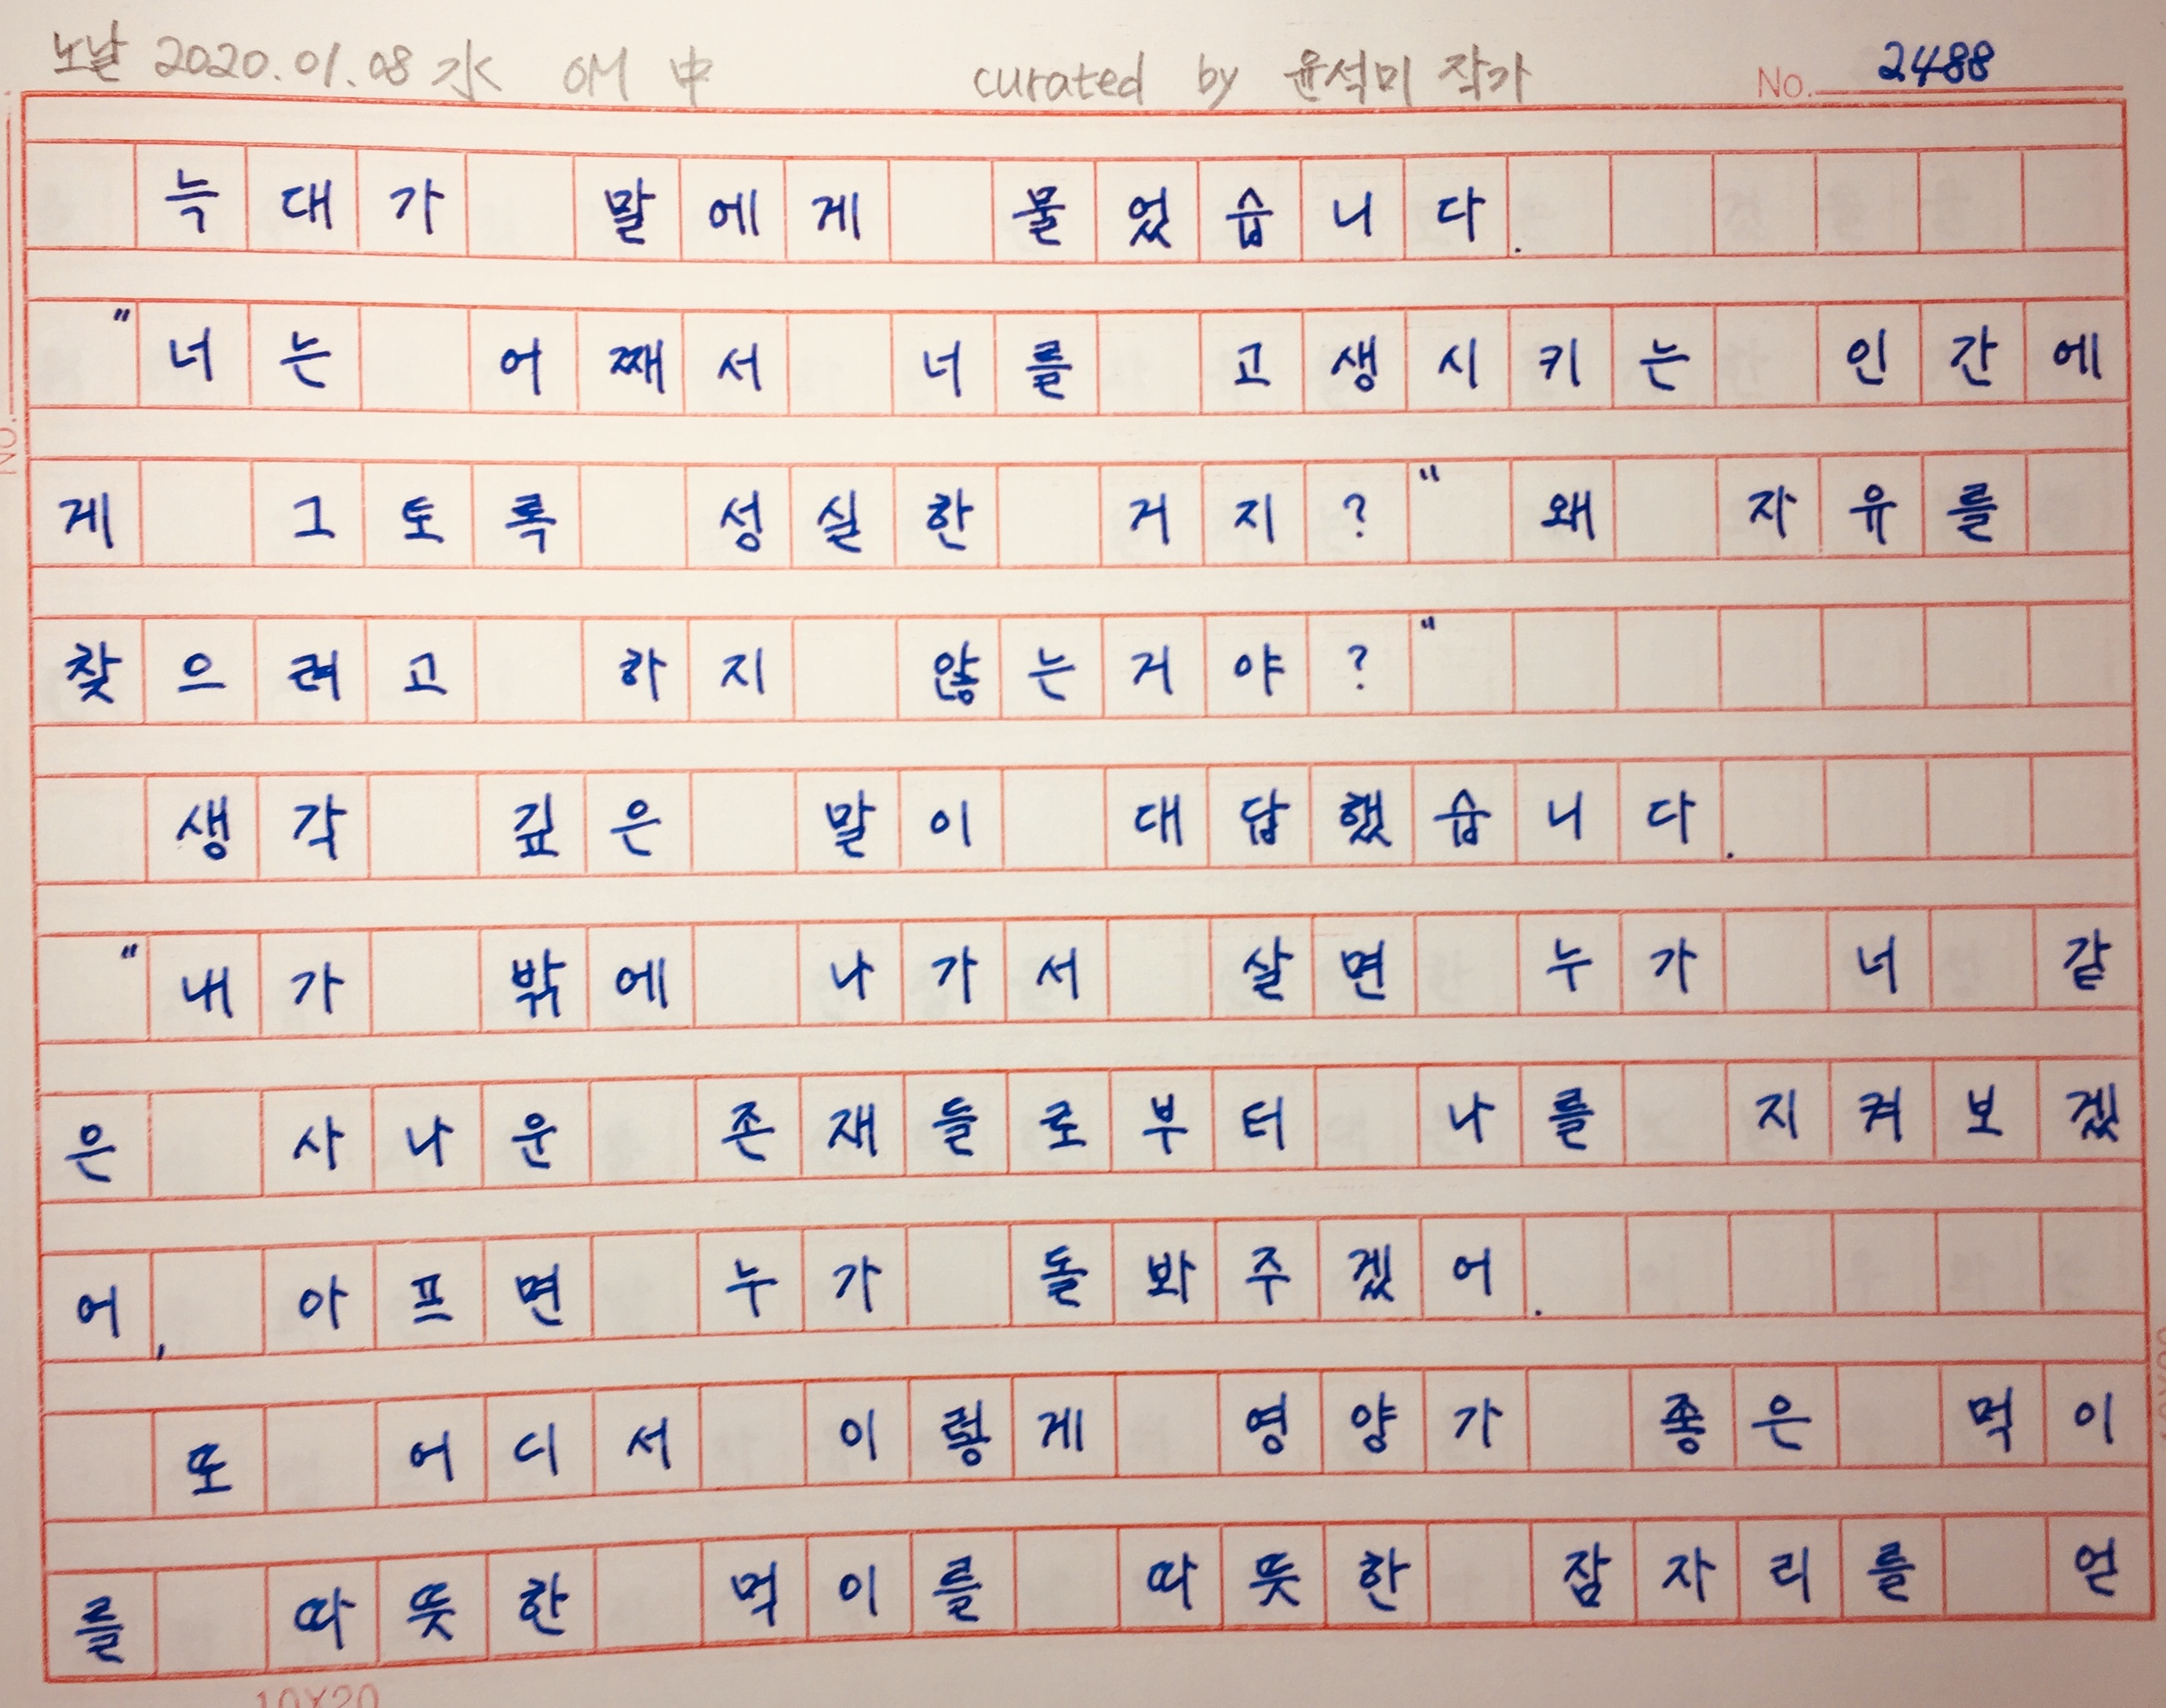 노날 2020.01.08 水 OM 中 curated by 윤석미 작가 No. 2488
늑대가 말에게 물었습니다.
"너는 어째서 너를 고생시키는 인간에
게 그토록 성실한 거지?" 왜 자유를
찾으려고 하지 않는거야?"
생각 깊은 말이 대답했습니다.
"내가 밖에 나가서 살면 누가 너 같
은 사나운 존재들로부터 나를 지켜보겠
어, 아프면 누가 돌봐주겠어.
또 어디서 이렇게 영양가 좋은 먹이
를 따뜻한 먹이를 따뜻한 잠자리를 얻
10X20
No.